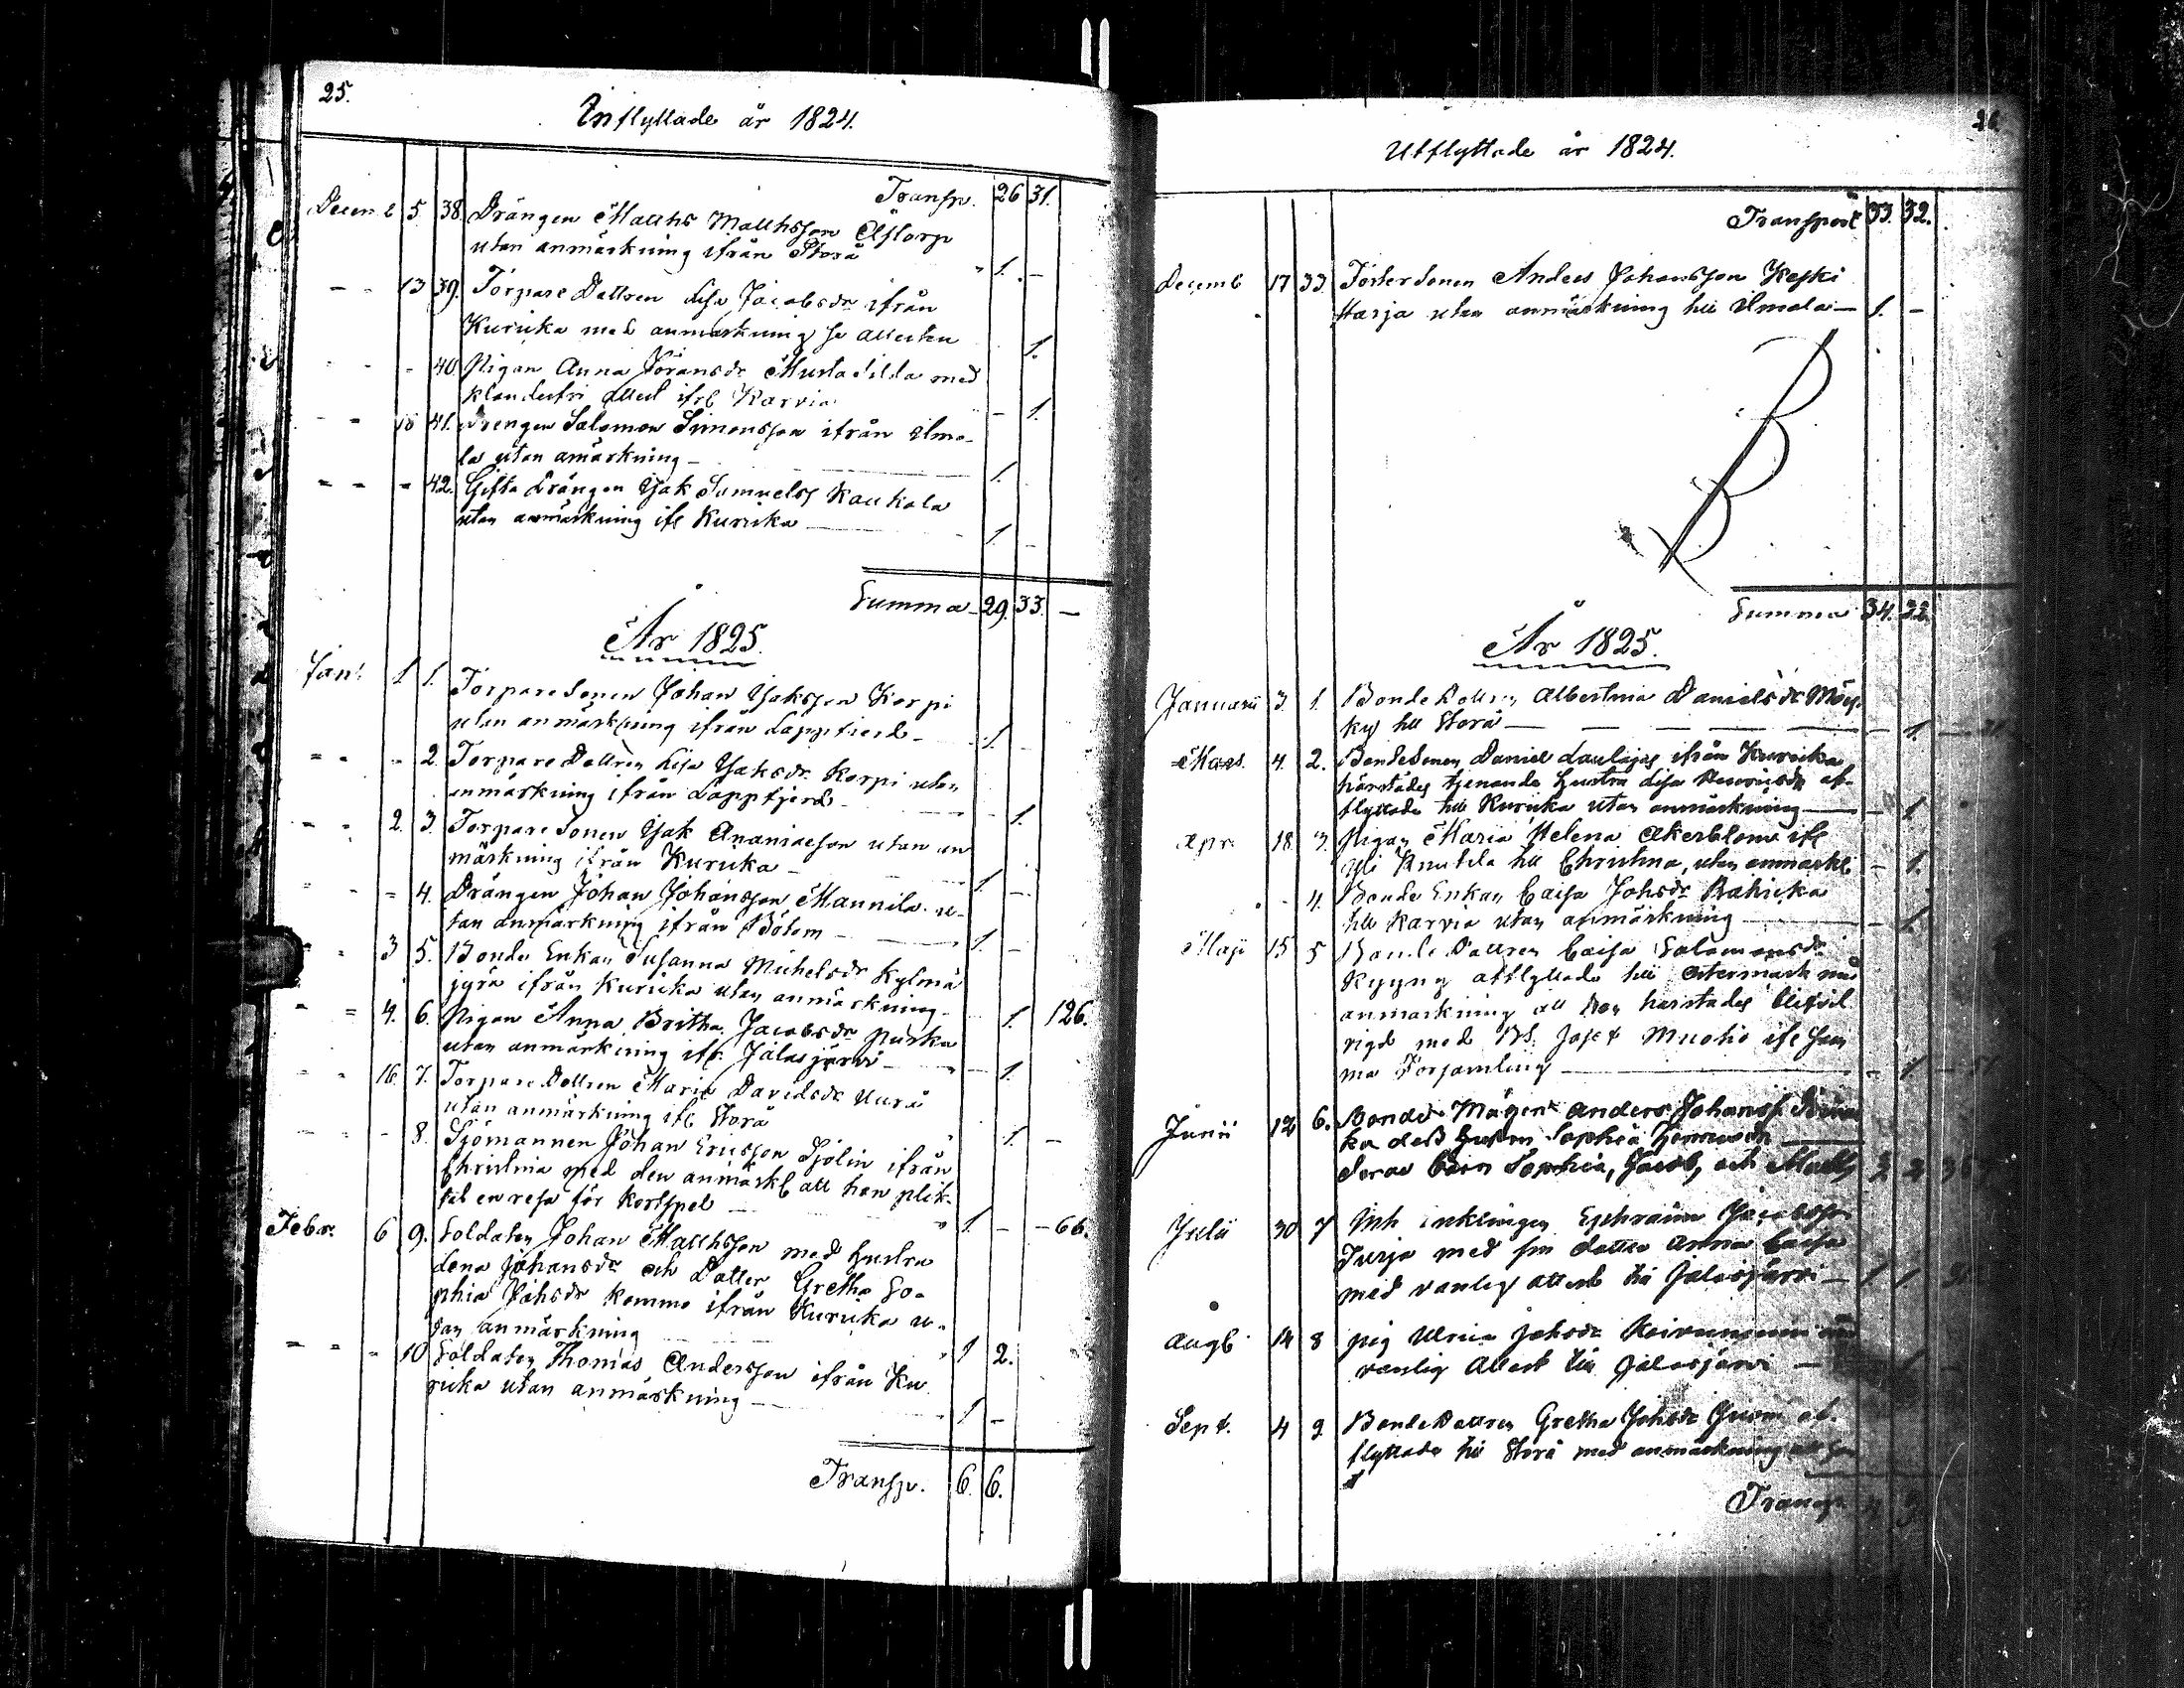 25.
Inflyttade år 1824.
Transp. 26 31.
Decemb 5 38. Drängen Matths Matthsson Åstorp
utan anmärkning ifrån Storå 1. -
13 39. Torpare Dottren Lisa Jacobsdr ifrån
Kuricka med anmärkning se attesten 1.
40. Pigan Anna Göransdr Mustasilda med
klanderfri attest ifrl Karvia - 1.
18 41. Drengen Salomon Simonsson ifrån Ilmo-
la utan anmärkning - 1.
42. Gifta Drängen Isak Samuelss Kaukola
utan anmärkning ifl Kuricka 1. -
Summa 29. 33. -
År 1825.
Jan: 1. 1. Torpare Sonen Johan Isaksson Korpi
utan anmärkning ifrån Lappfierd - 1. -
2. Torpare Dottren Lisa Isaksdr Korpi utan
anmärkning ifrån Lappfjerd - - 1.
2. 3. Torpare Sonen Isak Ananiaeson utan an
märkning ifrån Kuricka - 1. -
4. Drängen Johan Johansson Mannila u-
tan anmärkning ifrån Bötom 1. -
3 5. Bonde Enkan Susanna Michelsdr Kylmä
jyrä ifrån Kuricka utan anmärkning - 1. 126.
4. 6. Pigan Anna Britha Jacobsdr Purka
utan anmärkning ifr. Jalasjärvi - 1.
16. 7. Torpare Dottren Maria Davidsdr Uurä
utan anmärkning ifl Storå 1. -
8. Sjömannen Johan Ericsson Sjölin ifrån
Christina med den anmärkl att han plik-
tat en resa för kortspel 1 - - 66.
Febr. 6 9. Soldaten Johan Matthsson med hustru
Lena Johansdr och Dotter Gretha So-
phia Johsdr komme ifrån Kuricka u-
tan anmärkning 1 2.
10 Soldaten Thomas Andersson ifrån Ku
ricka utan anmärkning - 1 -
Transp. 6. 6.
Utflyttade år 1824.
Transport 33. 32.
Decemb 17 33. Anders Johansson Keski
Harja utan anmärkning till Ilmola - 1. -
Summa 34. 32.
År 1825.
Januarii 3. 1. Bonde Dottren Albertina Danielsdr
till Storå - 1.
Mars. 4. 2. Bondesonen Daniel Laulajas ifrån Kuricka
härstädes tjenande hustru Lisa Henricsdr af-
flyttade till Kuricka utan anmärkning 1.
Apr. 18. 3. Pigan Maria Helena Åkerblom ifl
Yli Knutila till Christina, utan anmärkl - 1.
4. Bonde Enkan Caisa Johsdr Rahicka
till Karvia utan anmärkning 1.
Maji 15 5 Bonde Dottren Caisa Salomonsdr
Kyyny afflyttade till Östermark med
anmärkning att hon härstädes blifvit
vigd med Josef Muotio ifl sam
ma Församling - 1
Junii 12 6. Bonde Mågen Anders Johanss
ka dess hustru Sophia
deras barn Sophia, Jacob, och Matts 3 2
Julii 30 7 Inh inklingen Ephraim Jacobsson
Jurja med sin dotter Anna Caisa
med vanlig attest till Jalasjärvi - 1 1
Augl 14 8 pig Ulrica Johsdr Koivuniemi
vanlig Attest till Jalasjärvi - 1
Sept. 4 9 Bonde Dottren Gretha Johsdr af-
flyttade till Storå med anmärkning
Transp.